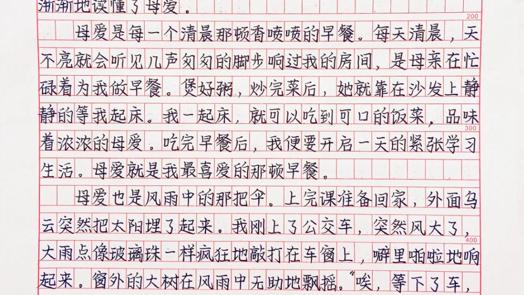 渐渐地读懂了母爱。
200
母爱是每一个清晨那顿香喷喷的早餐。每天清晨，天
不亮就会听见几声匆匆的脚步响过我的房间，是母亲在忙
碌着为我做早餐。煲好粥，炒完菜后，她就靠在沙发上静
静的等我起床。我一起床，就可以吃到可口的饭菜，品味
300
着浓浓的母爱。吃完早餐后，我便要开启一天的紧张学习
生活。母爱就是我最喜爱的那顿早餐。
母爱也是风雨中的那把伞。上完课准备回家，外面乌
云突然把太阳埋了起来。我刚上了公交车，突然风大了，
400
大雨点像玻璃珠一样疯狂地敲打在车窗上，噼里啪啦地响
起来。窗外的大树在风雨中无助地飘摇。“唉，等下了车，